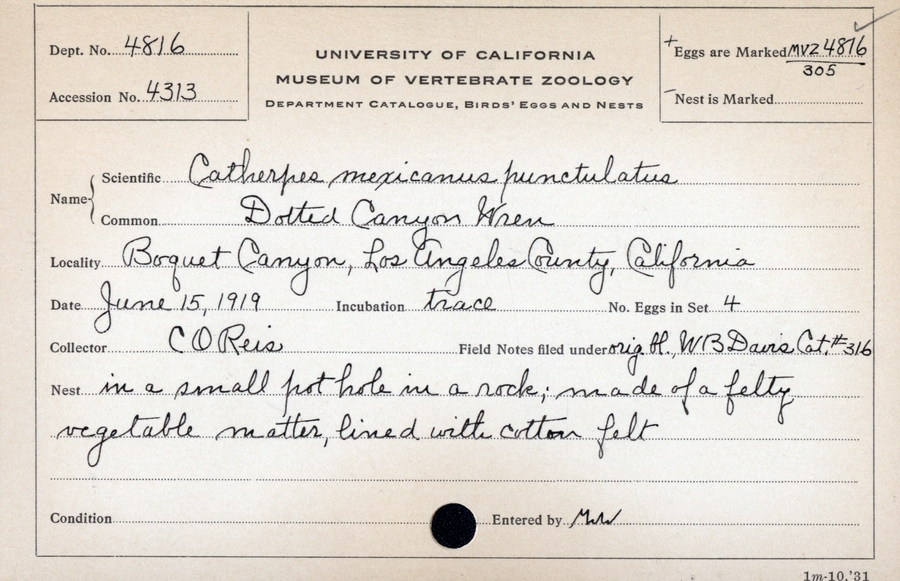 Dept. No. 4816
Accession No. 4313
UNIVERSITY OF CALIFORNIA
MUSEUM OF VERTEBRATE ZOOLOGY
DEPARTMENT CATALOGUE, BIRDS' EGGS AND NESTS
+Eggs are Marked MVZ 4816
305
-Nest is Marked
Name
Scientific Catherpes mexicanus punctulatus
Common Dotted Canyon Wren
Locality Boquet Canyon, Los Angeles County, California
Date June 15, 1919 Incubation trace No. Eggs in Set 4
Collector C O Reis Field Notes filed under orig. H., W B Davis Cat. #316
Nest in a small pot hole in a rock; made of a felty
vegetable matter, lined with cotton felt
Condition Entered by
1m-10,'31